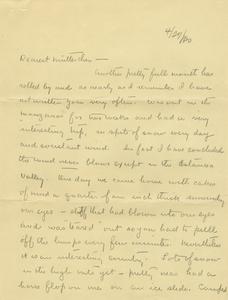 4/20/20
Dearest Mutterchen —
Another pretty full month has
rolled by and as nearly as I remember I have
not written you very often. Was out in the
for two weeks and had a very
interesting trip, in spite of snow every day
and constant wind. In fact I have concluded
the wind never blows except in the
Valley. One day we came home with cakes
of mud a quarter of an inch thick surrounding
our eyes — stuff that had blown into our eyes
and was teared out so you had to pull
off the lumps every few minutes. Nevertheless
it is an interesting country. Lots of snow
in the high yet — pretty near had a
horse flop over me on an ice slide. Camped